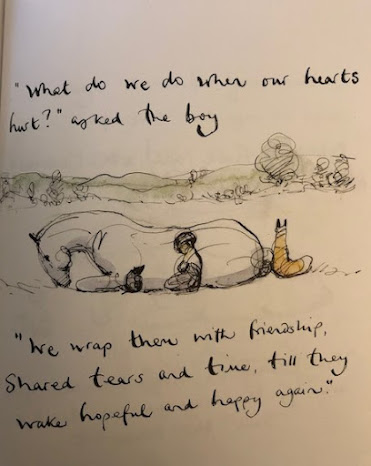 "What do we do when our hearts
hurt?" asked the boy
"We wrap them with friendship,
Shared tears and time, till they
wake hopeful and happy again."